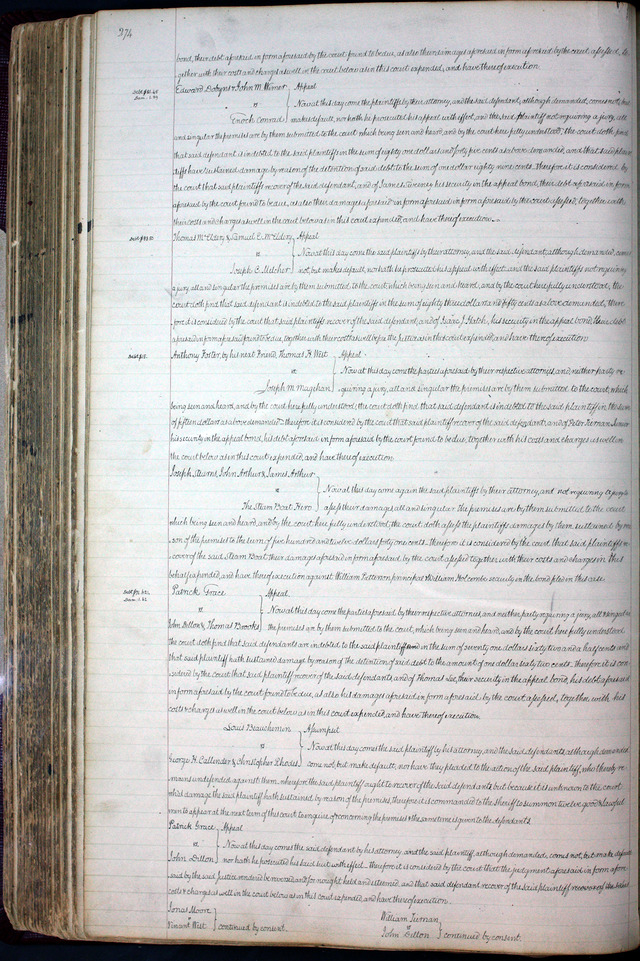 274
bond, their debt aforesaid in form aforesaid by the court found to be due, as also their damages aforesaid in form aforesaid by the court assessed, to
gether with their costs and charges as well in the court below as in this court expended, and have thereof execution.
Edward Dobyns & John M. Wimer } Appeal
vs } Now at this day come the plaintiffs by their attorney, and the said defendant, although demanded, comes not, but
Enoch Conrad } makes default, nor hath he prosecuted his appeal with effect, and the said plaintiffs not requiring a jury, all
and singular the premises are by them submitted to the court which being seen and heard, and by the court here fully understood, the court doth find
that said defendant is indebted to the said plaintiffs in the sum of eighty one dollars and forty five cents as above demanded, and that said plain
tiffs have sustained damage by reason of the detention of said debt to the sum of one dollar eighty nine cents. Therefore it is considered by
the court that said plaintiffs recover of the said defendant, and of James Sweeney his security in the appeal bond, their debt aforesaid in form
aforesaid by the court found to be due, as also their damages aforesaid in form aforesaid by the court assessed, together with
their costs and charges as well in the court below as in this court expended, and have thereof execution.
Thomas McElderry & Samuel E. McElderry } Appeal
vs } Now at this day come the said plaintiffs by their attorney, and the said defendant, although demanded, comes
Joseph E. Melcher } not, but makes default, nor hath he prosecuted his appeal with effect, and the said plaintiffs not requiring
a jury, all and singular the premises are by them submitted to the court, which being seen and heard, and by the court here fully understood, the
court doth find that said defendant is indebted to the said plaintiffs in the sum of eighty three dollars and fifty cents as above demanded, there
fore it is considered by the court that said plaintiffs recover of the said defendant, and of Isaac J. Hatch, his security in the appeal bond, their debt
aforesaid in form aforesaid found to be due, together with their costs as well before the justice as in this court expended, and have thereof execution.
Anthony Foster, by his next friend, Thomas H. West } Appeal.
vs } Now at this day come the parties aforesaid by their respective attornies, and neither party re
Joseph M. Magehan } quiring a jury, all and singular the premises are by them submitted to the court, which
being seen and heard, and by the court here fully understood, the court doth find that said defendant is indebted to the said plaintiff in the sum
of fifteen dollars as above demanded. Therefore it is considered by the court that said plaintiff recover of the said defendant, and of Peter
his security in the appeal bond, his debt aforesaid in form aforesaid by the court found to be due, together with his costs and charges as well in
the court below as in this court expended, and have thereof execution.
Joseph Stearns, John Arthur & James Arthur }
vs } Now at this day come again the said plaintiffs by their attorney, and not requiring a jury to
The Steam Boat Hero } assess their damages all and singular the premises are by them submitted to the court
which being seen and heard, and by the court here fully understood, the court doth assess the plaintiffs damages by them sustained by rea
son of the premises to the sum of five hundred and twelve dollars forty one cents. Therefore it is considered by the court that said plaintiffs re
cover of the said Steam Boat their damages aforesaid in form aforesaid by the court assessed together with their costs and charges in this
behalf expended, and have thereof execution against William Petterson principal & William Holcombe security in the bond filed in this case.
Patrick Grace } Appeal
vs } Now at this day come the parties aforesaid by their respective attornies, and neither party requiring a jury, all & singular
John Dillon & Thomas Brooks } the premises are by them submitted to the court, which being seen and heard, and by the court here fully understood
the court doth find that said defendants are indebted to the said plaintiff in the sum of seventy one dollars sixty two and a half cents and
that said plaintiff hath sustained damage by reason of the detention of said debt to the amount of one dollar sixty two cents. Therefore it is con
sidered by the court that said plaintiff recover of the said defendants, and of Thomas their security in the appeal bond, his debt aforesaid
in form aforesaid by the court found to be due, as also his damages aforesaid in form aforesaid by the court assessed, together with his
costs & charges as well in the court below as in this court expended, and have thereof execution.
Louis Beauchemin } Assumpsit
vs } Now at this day comes the said plaintiff by his attorney, and the said defendants, although demanded
George H. Callender & Christopher Rhodes } come not, but make default, nor have they pleaded to the action of the said plaintiff, who thereby re
mains undefended against them, wherefore the said plaintiff ought to recover of the said defendants but because it is unknown to the court
what damage the said plaintiff hath sustained by reason of the premises, therefore it is commanded to the sheriff to summon twelve good & lawful
men to appear at the next term of this court to enquire of concerning the premises & the same time is given to the defendants.
Patrick Grace } Appeal
vs } Now at this day comes the said defendant by his attorney, and the said plaintiff, although demanded, comes not, but makes default
John Dillon } nor hath he prosecuted his said suit with effect. Therefore it is considered by the court that the judgment aforesaid in form afore
said by the said justice rendered be reversed and for nought held and esteemed, and that said defendant recover of the said plaintiff
costs & charges as well in the court below as in this court expended, and have thereof execution.
Jonas Moore }
vs } continued by consent.
Vincent West }
William Tiernan }
vs } continued by consent.
John Dillon }